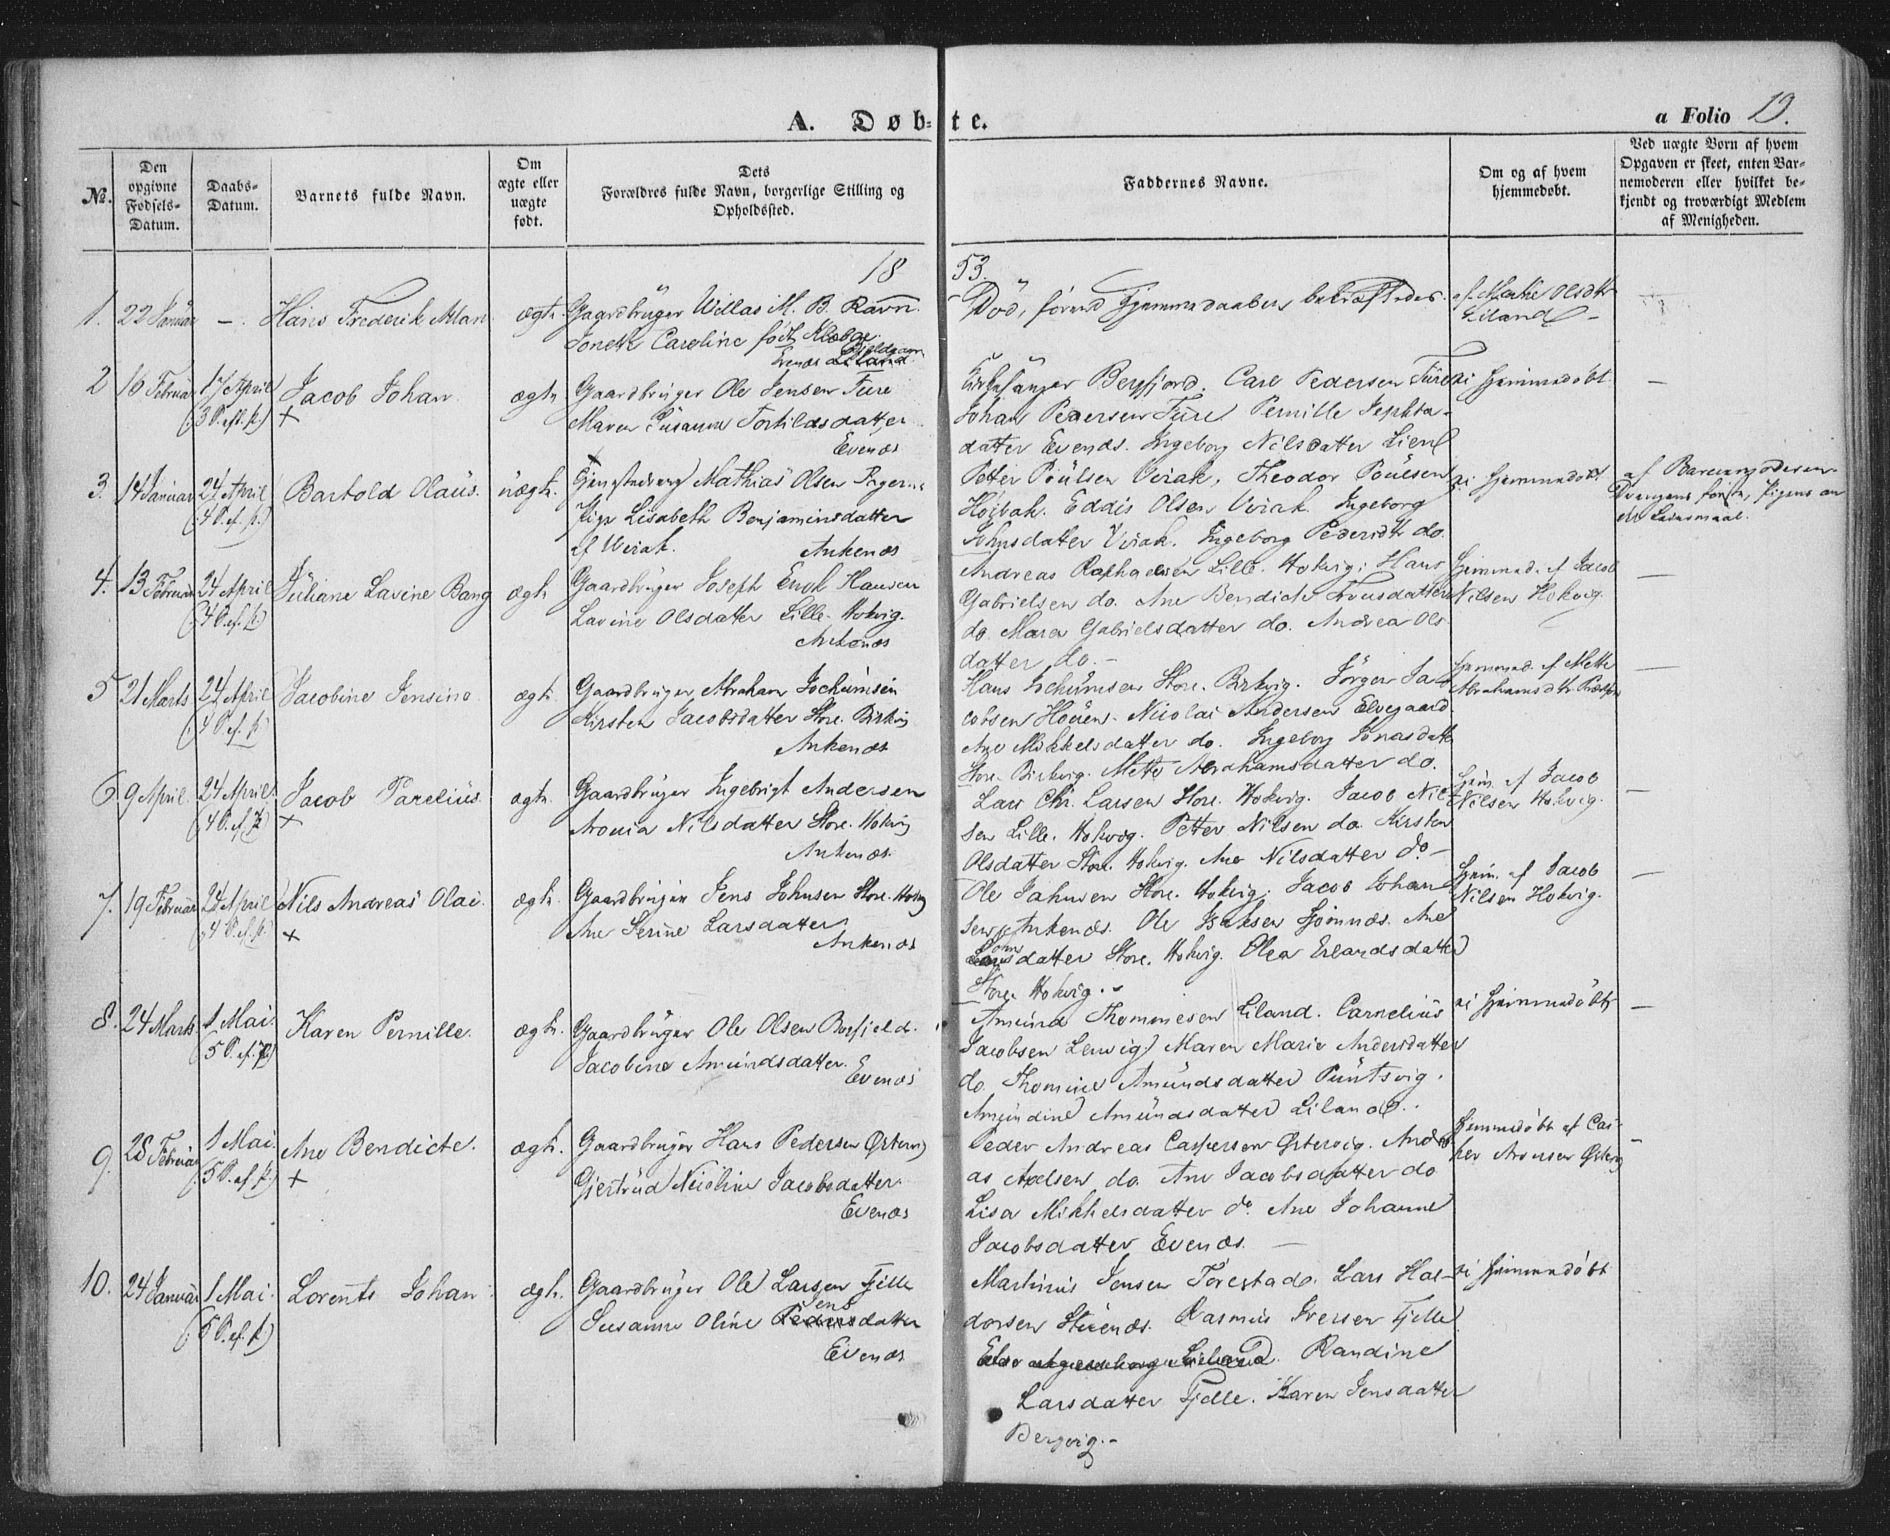 A. Døbte.
a Folio 19.
№.
Den opgivne Fødsels-Datum.
Daabs-Datum.
Barnets fulde Navn.
Om ægte eller uægte født.
Dets Forældres fulde Navn, borgerlige Stilling og Opholdssted.
Faddernes Navne.
Om og af hvem hjemmedøbt.
Ved uægte Børn af hvem Opgaven er skeet, enten Barnemoderen eller hvilket bekjendt og troværdigt Medlem af Menigheden.
1853.
1. 22 Januar —. Hans Frederik Allan ægte.
Gaardbruger Willas M. B. Ravn.
Caroline født Klæboe
Evenæs Liland
Død, førend Hjemmedaaben bekræftedes.
af Olsdtr
Liland
2 16 Februar 17 April Jacob Johan ægte
(3 S. eft. p.) +
Gaardbruger Ole Jensen Fure
Maren Susanne Torkildsdatter
Evenæs
Kirkesanger Bergfjord. Carl Pedersen Fure
Johan Pedersen Fure Pernille Jephta-
datter Evenæs. Ingeborg Nilsdatter Lien
ei hjemmedøbt. —
3. 14 Januar 24 April Bartold Olaus. uægte.
(4 S. ef. p.)
Mathias Olsen
Pige Lisabeth Benjaminsdatter
af Virak. Ankenæs
Petter Poulsen Virak, Theodor Poulsen
Højbak. Eddis Olsen Virak. Ingeborg
Johnsdatter Virak. Ingeborg Pedersdtr do.
ei hjemmedøbt
af Barnemoderen
Drengens første, Pigens an
det Leiermaal.
4. 13 Februar 24 April Juliane Lavine Bang ægte
(4 S. ef. p.)
Gaardbruger Joseph Enok Hansen
Lavine Olsdatter Lille-Hokvig.
Ankenæs
Andreas Raphaelsen Lille-Hokvig. Hans
Gabrielsen do. Ane Bendicte Tronsdatter
do. Maren Gabrielsdatter do. Andrea Ols
datter do. —
hjemmed. af Jacob
Nilsen Hokvig. —
5 21 Marts 24 April Jacobine Jensine ægte.
(4 S. ef. p.)
Gaardbruger Abraham Jochumsen
Kirsten Jacobsdatter Store-Birkvig
Ankenæs
Hans Jochumsen Store-Birkvig. Jørgen Ja-
cobsen Houen. Nicolai Andersen Elvegaard
Ane Mikkelsdatter do. Ingeborg Jonasdatter
Store-Birkvig. Mette Abrahamsdatter do.
hjemmed. af Mette
Abrahamsdtr. —
6 9 April. 24 April Jacob Parelius ægte.
(4 S. ef. p.) +
Gaardbruger Ingebrigt Andersen
Aronia Nilsdatter Store-Hokvig
Ankenæs.
Lars Chr. Larsen Store-Hokvig. Jacob Nil-
sen Lille-Hokvig. Petter Nilsen do. Kirsten
Olsdatter Store-Hokvig. Ane Nilsdatter do —
hjem. af Jacob
Nilsen Hokvig. —
7. 19 Februar 24 April Nils Andreas Olai. ægte.
(4 S. ef. p.) +
Gaardbruger Jens Johnsen Store-Hokvig
Ane Serine Larsdatter
Ankenæs
Ole Johnsen Store-Hokvig. Jacob Johan
sen Ankenæs. Ole Isaksen Ane
datter Store-Hokvig. Olea Erlandsdatter
Store-Hokvig. —
hjem. af Jacob
Nilsen Hokvig. —
8. 24 Marts 1 Mai. Karen Pernille. ægte.
(5 S. ef. p.)
Gaardbruger Ole Olsen Bogfjeld.
Jacobine Amundsdatter.
Evenæs
Amund Thommesen Liland. Carnelius
Jacobsen Lenvig. Maren Marie Andersdatter
do. Thomine Amundsdatter Puntsvig.
Amundine Amundsdatter Liland.
ei hjemmedøbt —
9. 28 Februar 1 Mai Ane Bendicte. ægte.
(5 S. ef. p.) +
Gaardbruger Hans Pedersen Østervig
Gjertrud Nicoline Jacobsdatter.
Evenæs
Peder Andreas Caspersen Østervig. Andre
as Axelsen do. Ane Jacobsdatter do
Lisa Mikkelsdatter do. Ane Johanne
Jacobsdatter Evenæs. —
hjemmedøbt af Cas-
per Aronsen Østervig —
10. 24 Januar 1 Mai. Lorents Johan ægte.
(5 S. ef. p.)
Gaardbruger Ole Larsen Fjelle
Susanne Oline Jensdatter
Evenæs
Martinus Jensen Tørestad. Lars Hal-
dorsen Stunæs. Rasmus Iversen Fjelle.
Randine
Larsdatter Fjelle. Karen Jensdatter
Bergvig. —
ei hjemmedøbt